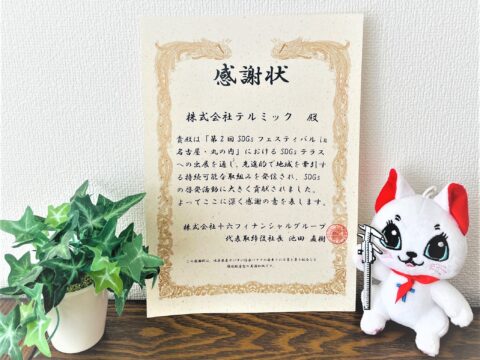 感謝状
株式会社テルミック 殿
貴殿は「第2回SDGsフェスティバル in
名古屋・丸の内」におけるSDGsテラス
への出展を通じ、先進的で地域を牽引す
る持続可能な取組みを発信され、SDGs
の啓発活動に大きく貢献されました。
よってここに深く感謝の意を表します。
株式会社十六フィナンシャルグループ
代表取締役社長 池田 直樹